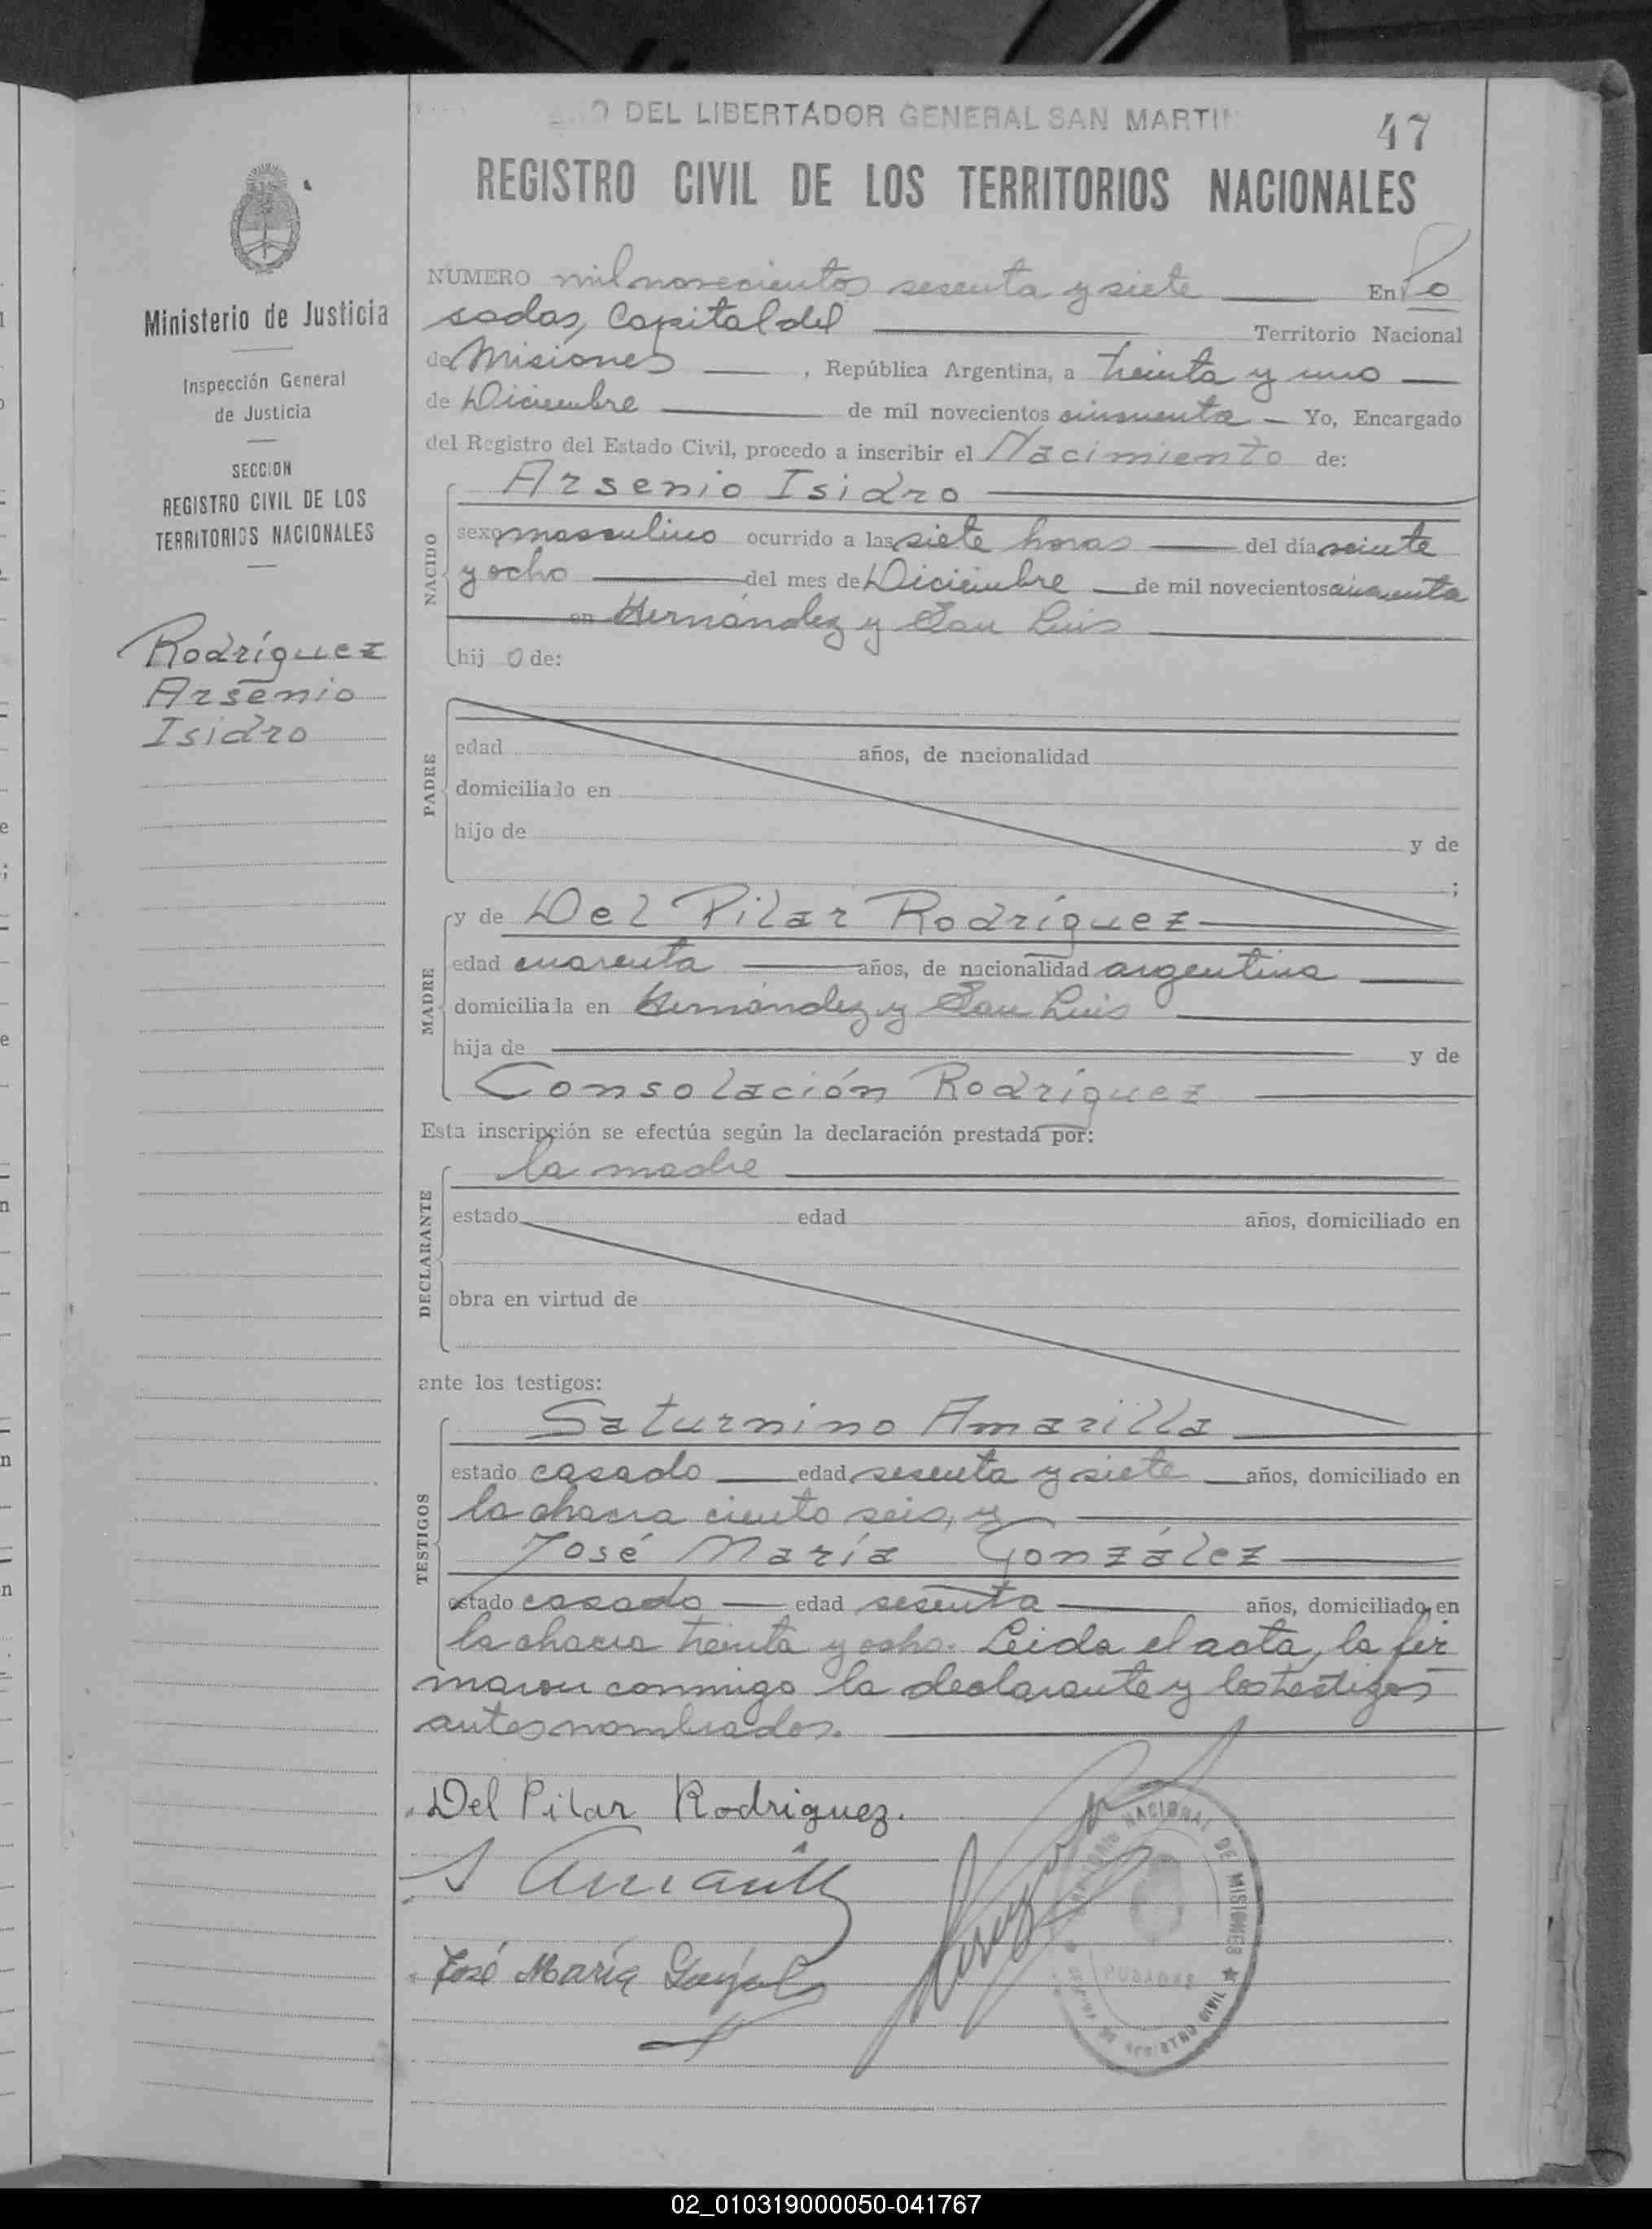 DEL LIBERTADOR GENERAL SAN MARTIN
47
REGISTRO CIVIL DE LOS TERRITORIOS NACIONALES
Ministerio de Justicia
Inspección General
de Justicia
SECCION
REGISTRO CIVIL DE LOS
TERRITORIOS NACIONALES
Rodríguez
Arsenio
Isidro
NUMERO mil novecientos sesenta y siete En Po
sadas, Capital del Territorio Nacional
de Misiones, República Argentina, a treinta y uno
de Diciembre de mil novecientos cincuenta Yo, Encargado
del Registro del Estado Civil, procedo a inscribir el Nacimiento de:
NACIDO
Arsenio Isidro
sexo masculino ocurrido a las siete horas del día veinte
y ocho del mes de Diciembre de mil novecientos cincuenta
en Hernández y San Luis
hijo de:
PADRE
edad años, de nacionalidad
domiciliado en
hijo de y de
;
MADRE
y de Del Pilar Rodríguez
edad cuarenta años, de nacionalidad argentina
domiciliada en Hernández y San Luis
hija de y de
Consolación Rodríguez
Esta inscripción se efectúa según la declaración prestada por:
DECLARANTE
la madre
estado edad años, domiciliado en
obra en virtud de
ante los testigos:
TESTIGOS
Saturnino Amarilla
estado casado edad sesenta y siete años, domiciliado en
la chacra ciento seis, y
José María González
estado casado edad sesenta años, domiciliado en
la chacra treinta y ocho. Leida el acta, la fir
maron conmigo la declarante y los testigos
antes nombrados.
Del Pilar Rodriguez.
S Amarilla
José María González
TERRITORIO NACIONAL DE MISIONES
POSADAS
REGISTRO CIVIL
02_010319000050-041767